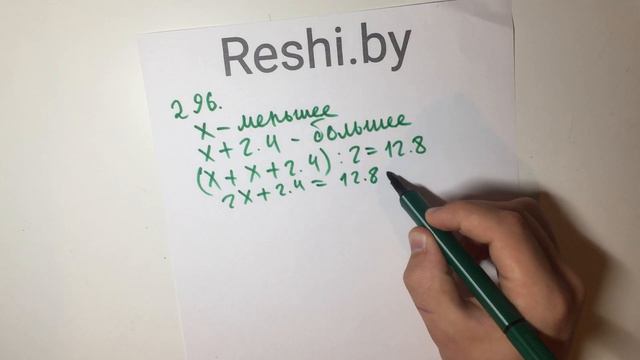 Reshi.by
296.
x – меньшее
x + 2.4 – большее
(x + x + 2.4) : 2 = 12.8
2x + 2.4 = 12.8